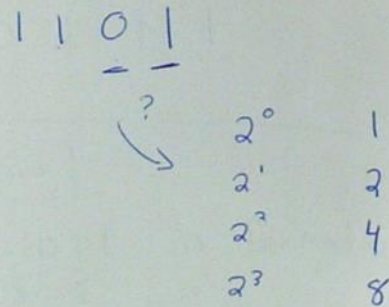 1 1 0 1
?
2⁰ 1
2¹ 2
2² 4
2³ 8